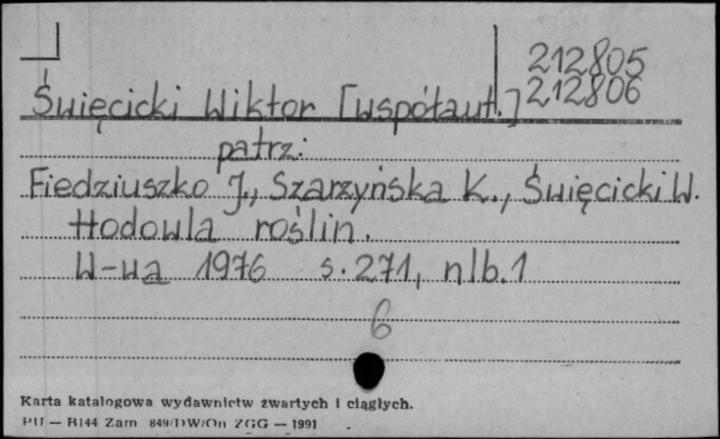 212805
212806
Święcicki Wiktor [współaut.]
patrz:
Fiedziuszko J., Szarzyńska K., Święcicki W.
Hodowla roślin.
W-wa 1976 s. 271, nlb. 1
6
Karta katalogowa wydawnictw zwartych i ciągłych.
PU — B144 Zam 849/DW/On ZGG — 1991